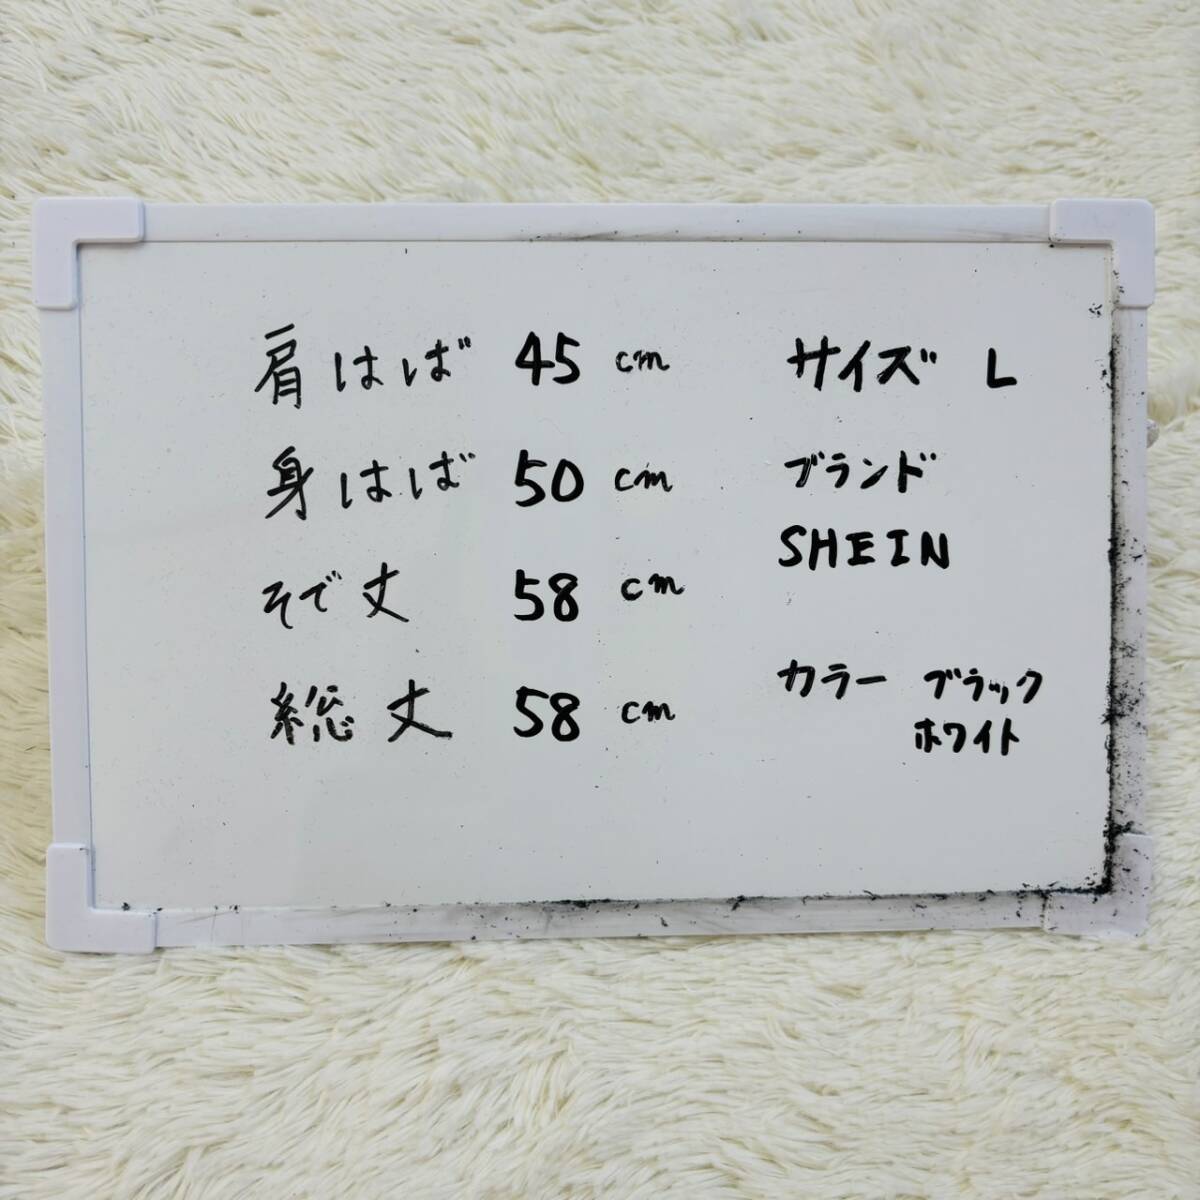 肩はば 45 cm
身はば 50 cm
そで丈 58 cm
総丈 58 cm
サイズ L
ブランド
SHEIN
カラー ブラック
ホワイト